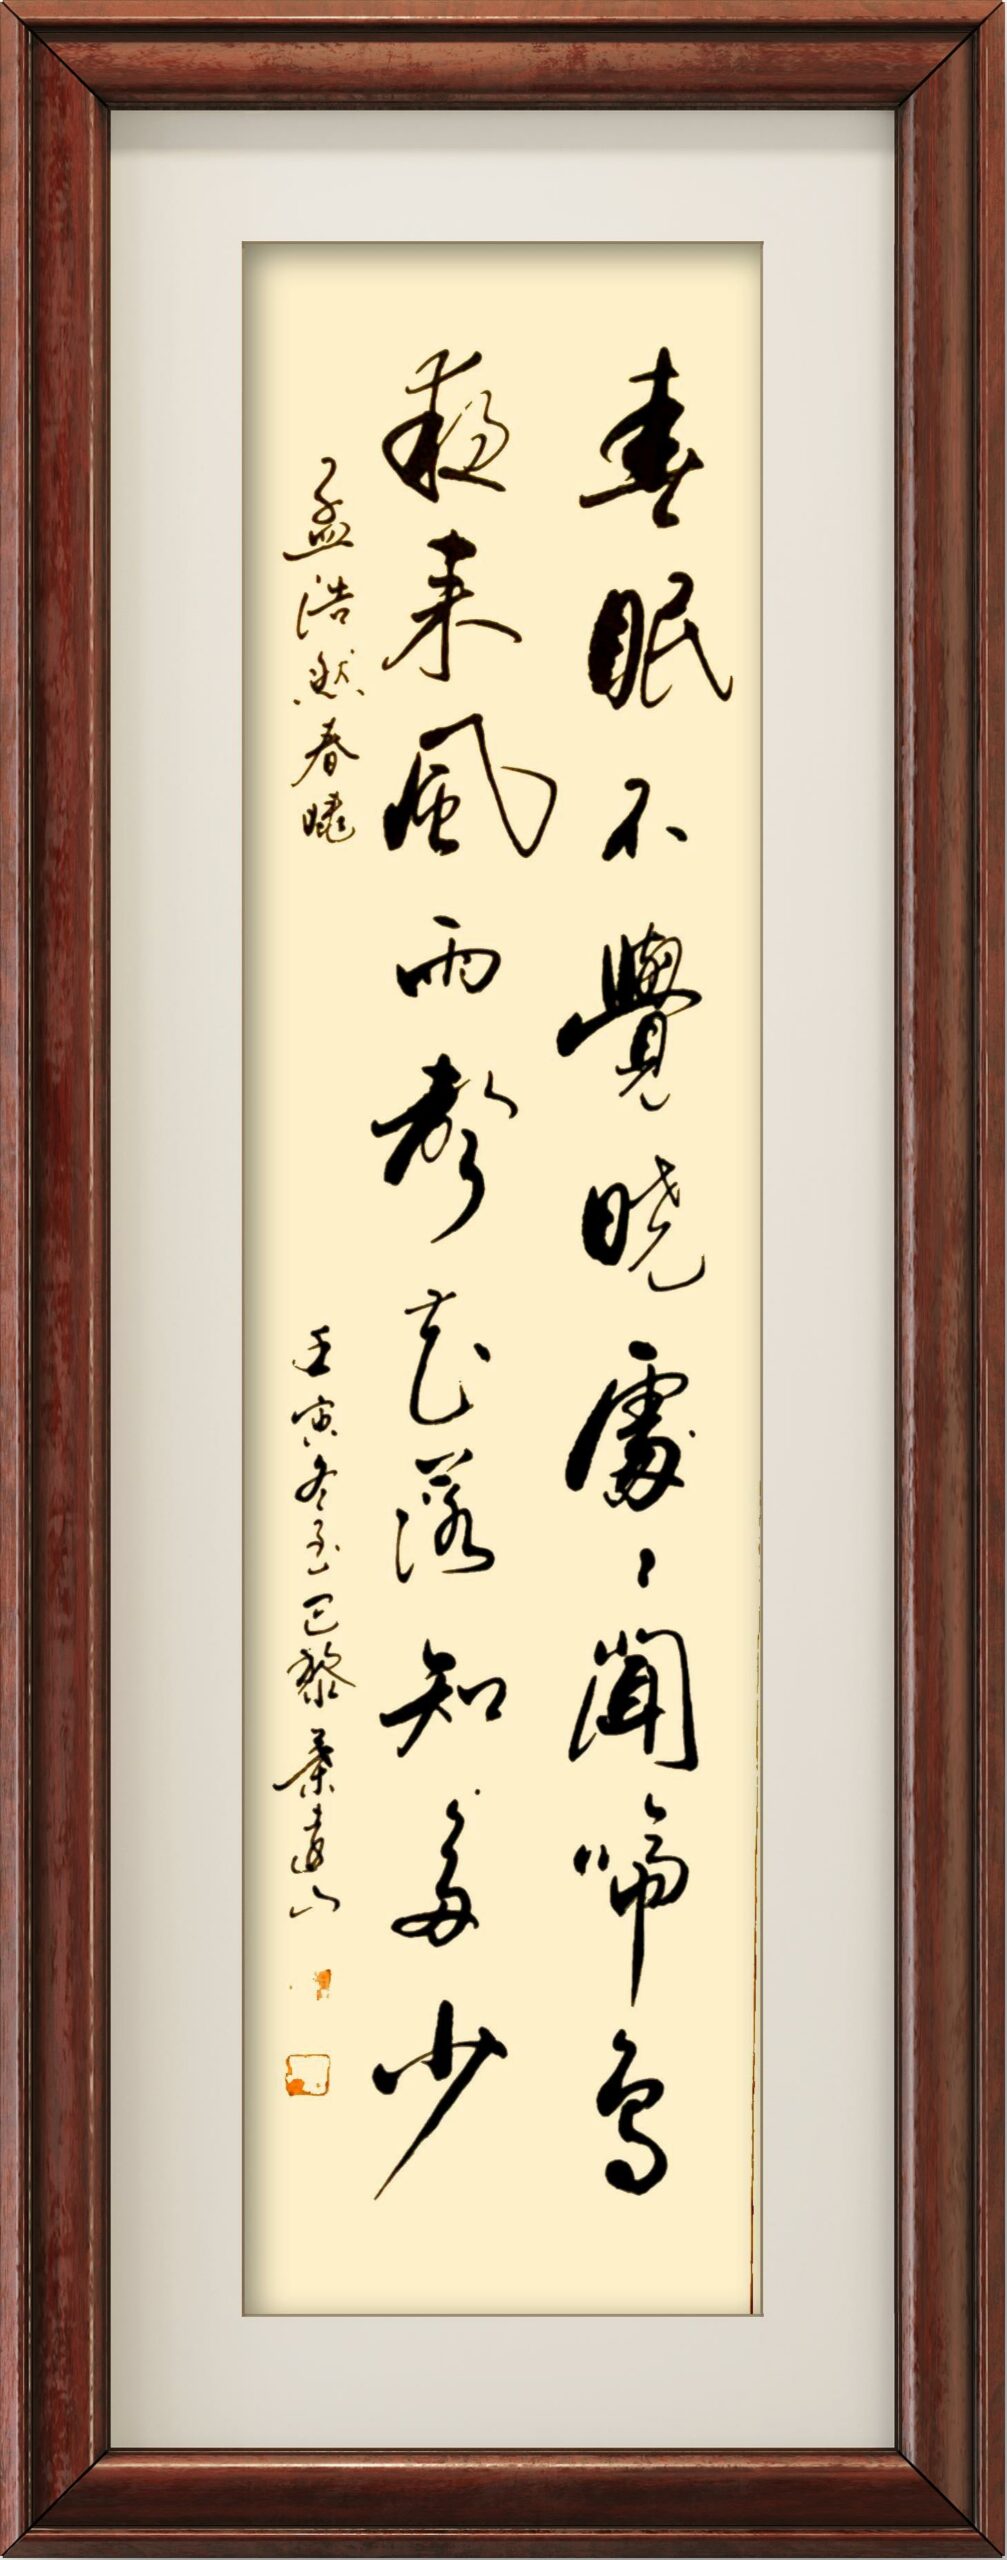 春眠不覺曉處〻聞啼鳥
夜来風雨聲花落知多少
孟浩然春曉
壬寅冬至巴黎葉遠山